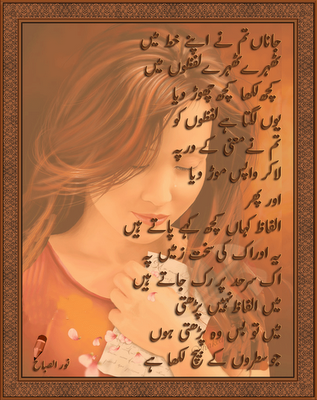 جاناں تم نے اپنے خط میں
ٹھہرے ٹھہرے لفظوں میں
کچھ لکھا کچھ چھوڑ دیا
یوں لگتا ہے لفظوں کو
تم نے معنی کے در پہ
لا کر واپس موڑ دیا
اور پھر
الفاظ کہاں کچھ کہہ پاتے ہیں
یہ ادراک کی سخت زمیں پہ
اک سرحد پر رک جاتے ہیں
میں الفاظ نہیں پڑھتی
میں تو بس وہ پڑھتی ہوں
جو سطروں کے بیچ لکھا ہے
نور الصباح